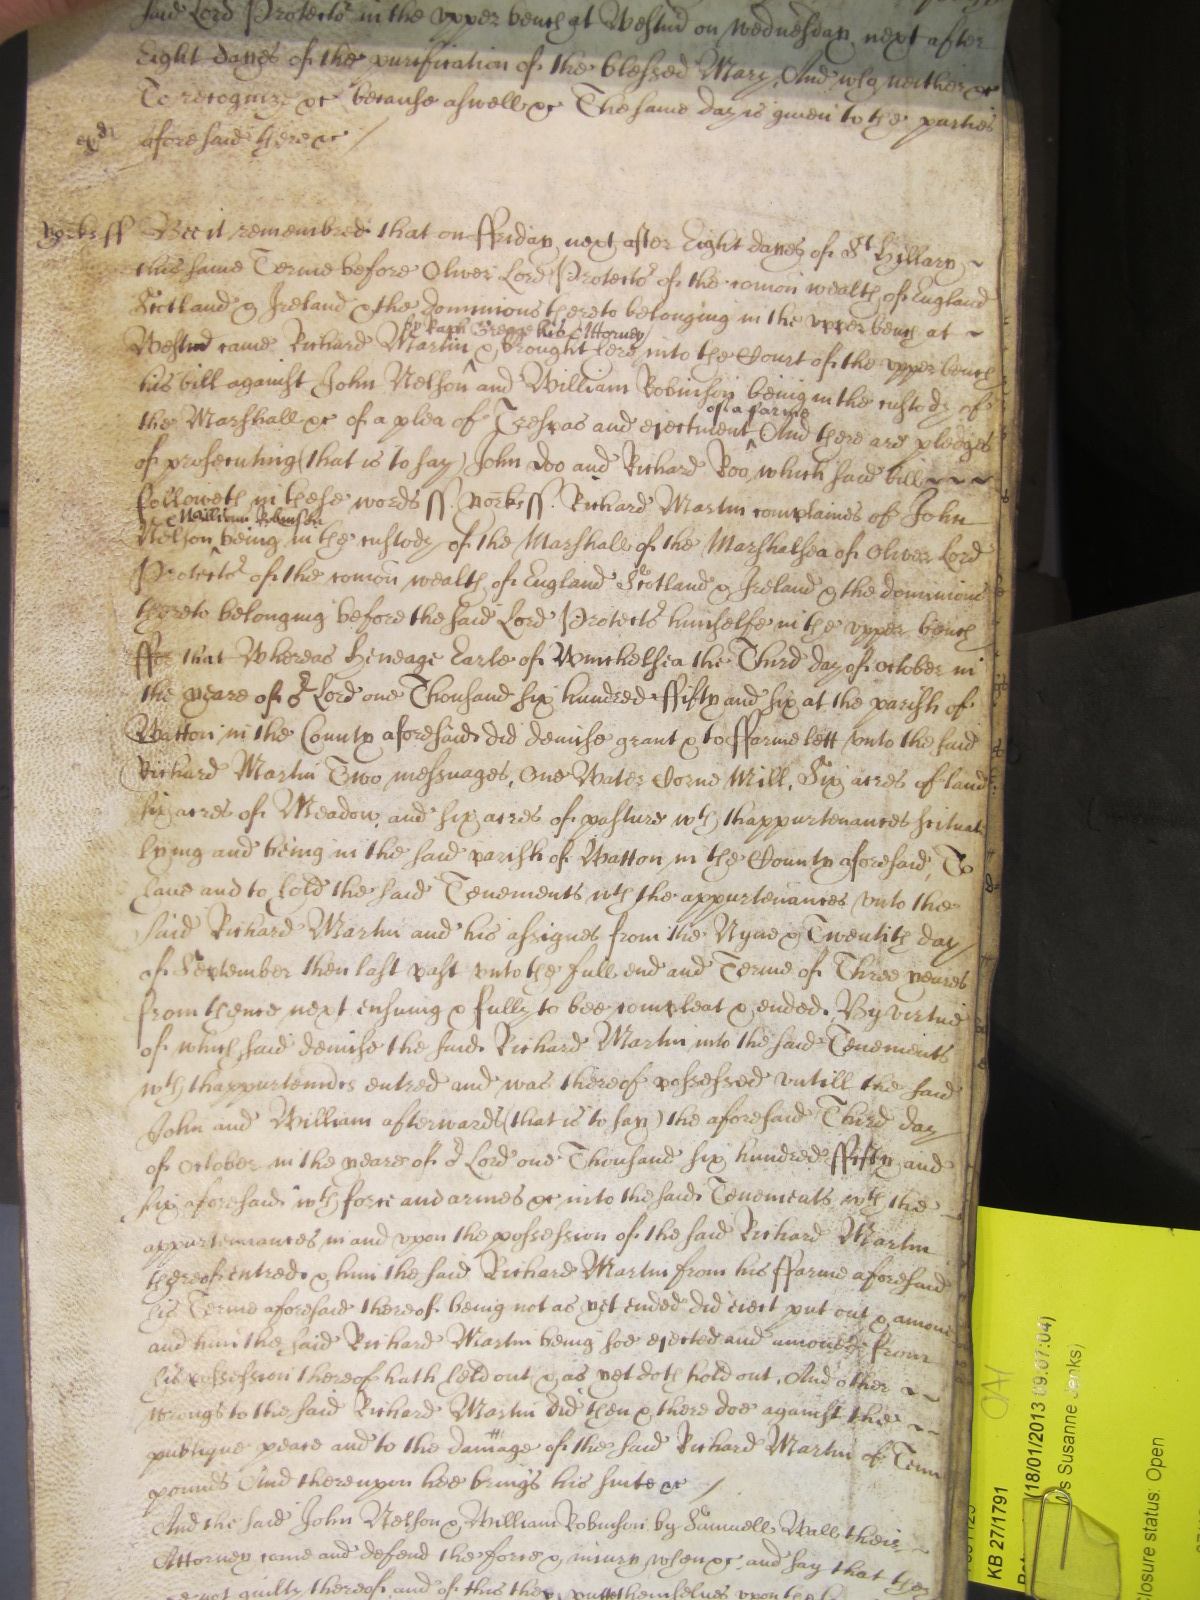 said Lord Protector in the upper bench at Westmr on wednesday next after
Eight dayes of the purification of the blessed Mary, And who neither &c
To recognize &c because aswell &c The same day is given to the parties
exd aforesaid here &c /
Yorks ss Bee it remembred that on ffriday next after Eight dayes of St Hillary ~
this same Terme before Oliver Lord Protector of the comon wealth of England
Scotland & Ireland & the dominions thereto belonging in the upper bench at ~
by Raph Gregge his Attorney
Westmr came Richard Martin & brought here into the Court of the upper bench
his bill against John Nelson and William Robinson being in the custody of
of a farme
the Marshall &c of a plea of Trespas and ejectment And there are pledges
of prosecuting (that is to say) John Doo and Richard Roo, which said bill ~ ~ ~
followeth in these words ss. Yorks ss. Richard Martin complaines of John
& William Robinson
Nelson being in the custody of the Marshall of the Marshalsea of Oliver Lord
Protector of the comon wealth of England Scotland & Ireland & the dominions
thereto belonging before the said Lord Protector himselfe in the upper bench
ffor that Whereas Heneage Earle of Winchelsea the Third day of october in
the yeare of or Lord one Thousand six hundred ffifty and six at the parish of
Watton in the County aforesaid did demise grant & to ffarme lett unto the said
Richard Martin Two messuages, One Water Corne Mill, Six acres of land
six acres of Meadow, and six acres of pasture wth thappurtenances scituate
lying and being in the said parish of Watton in the County aforesaid, To
have and to hold the said Tenements wth the appurtenances unto the
said Richard Martin and his assignes from the Nyne & Twentith day
of September then last past unto the full end and Terme of Three yeares
from thence next ensuing & fully to bee compleat & ended. By virtue
of which said demise the said Richard Martin into the said Tenements
wth thappurtennces entred and was thereof possessed untill the said
John and William afterwards (that is to say) the aforesaid Third day
of october in the yeare of or Lord one Thousand six hundred ffifty and
six aforesaid wth force and armes &c into the said Tenements wth the
appurtennances in and upon the possession of the said Richard Martin
thereof entred & him the said Richard Martin from his ffarme aforesaid
his Terme aforesaid thereof being not as yet ended did eiect put out & amove
and him the said Richard Martin being soe ejected and amoved from
his possession thereof hath held out & as yet doth hold out, And other ~ ~
wrongs to the said Richard Martin did then & there doe against the ~ ~
publique peace and to the damage of the said Richard Martin of Tenn
pounds And thereupon hee brings his suite &c /
And the said John Nelson & William Robinson by Samuell Wall their ~
Attorney come and defend the force & iniury when &c and say that they
are not guilty thereof and of this they putt themselves upon the
KB 27/1791
(18/01/2013 09:07:04)
s Susanne Jenks)
losure status: Open